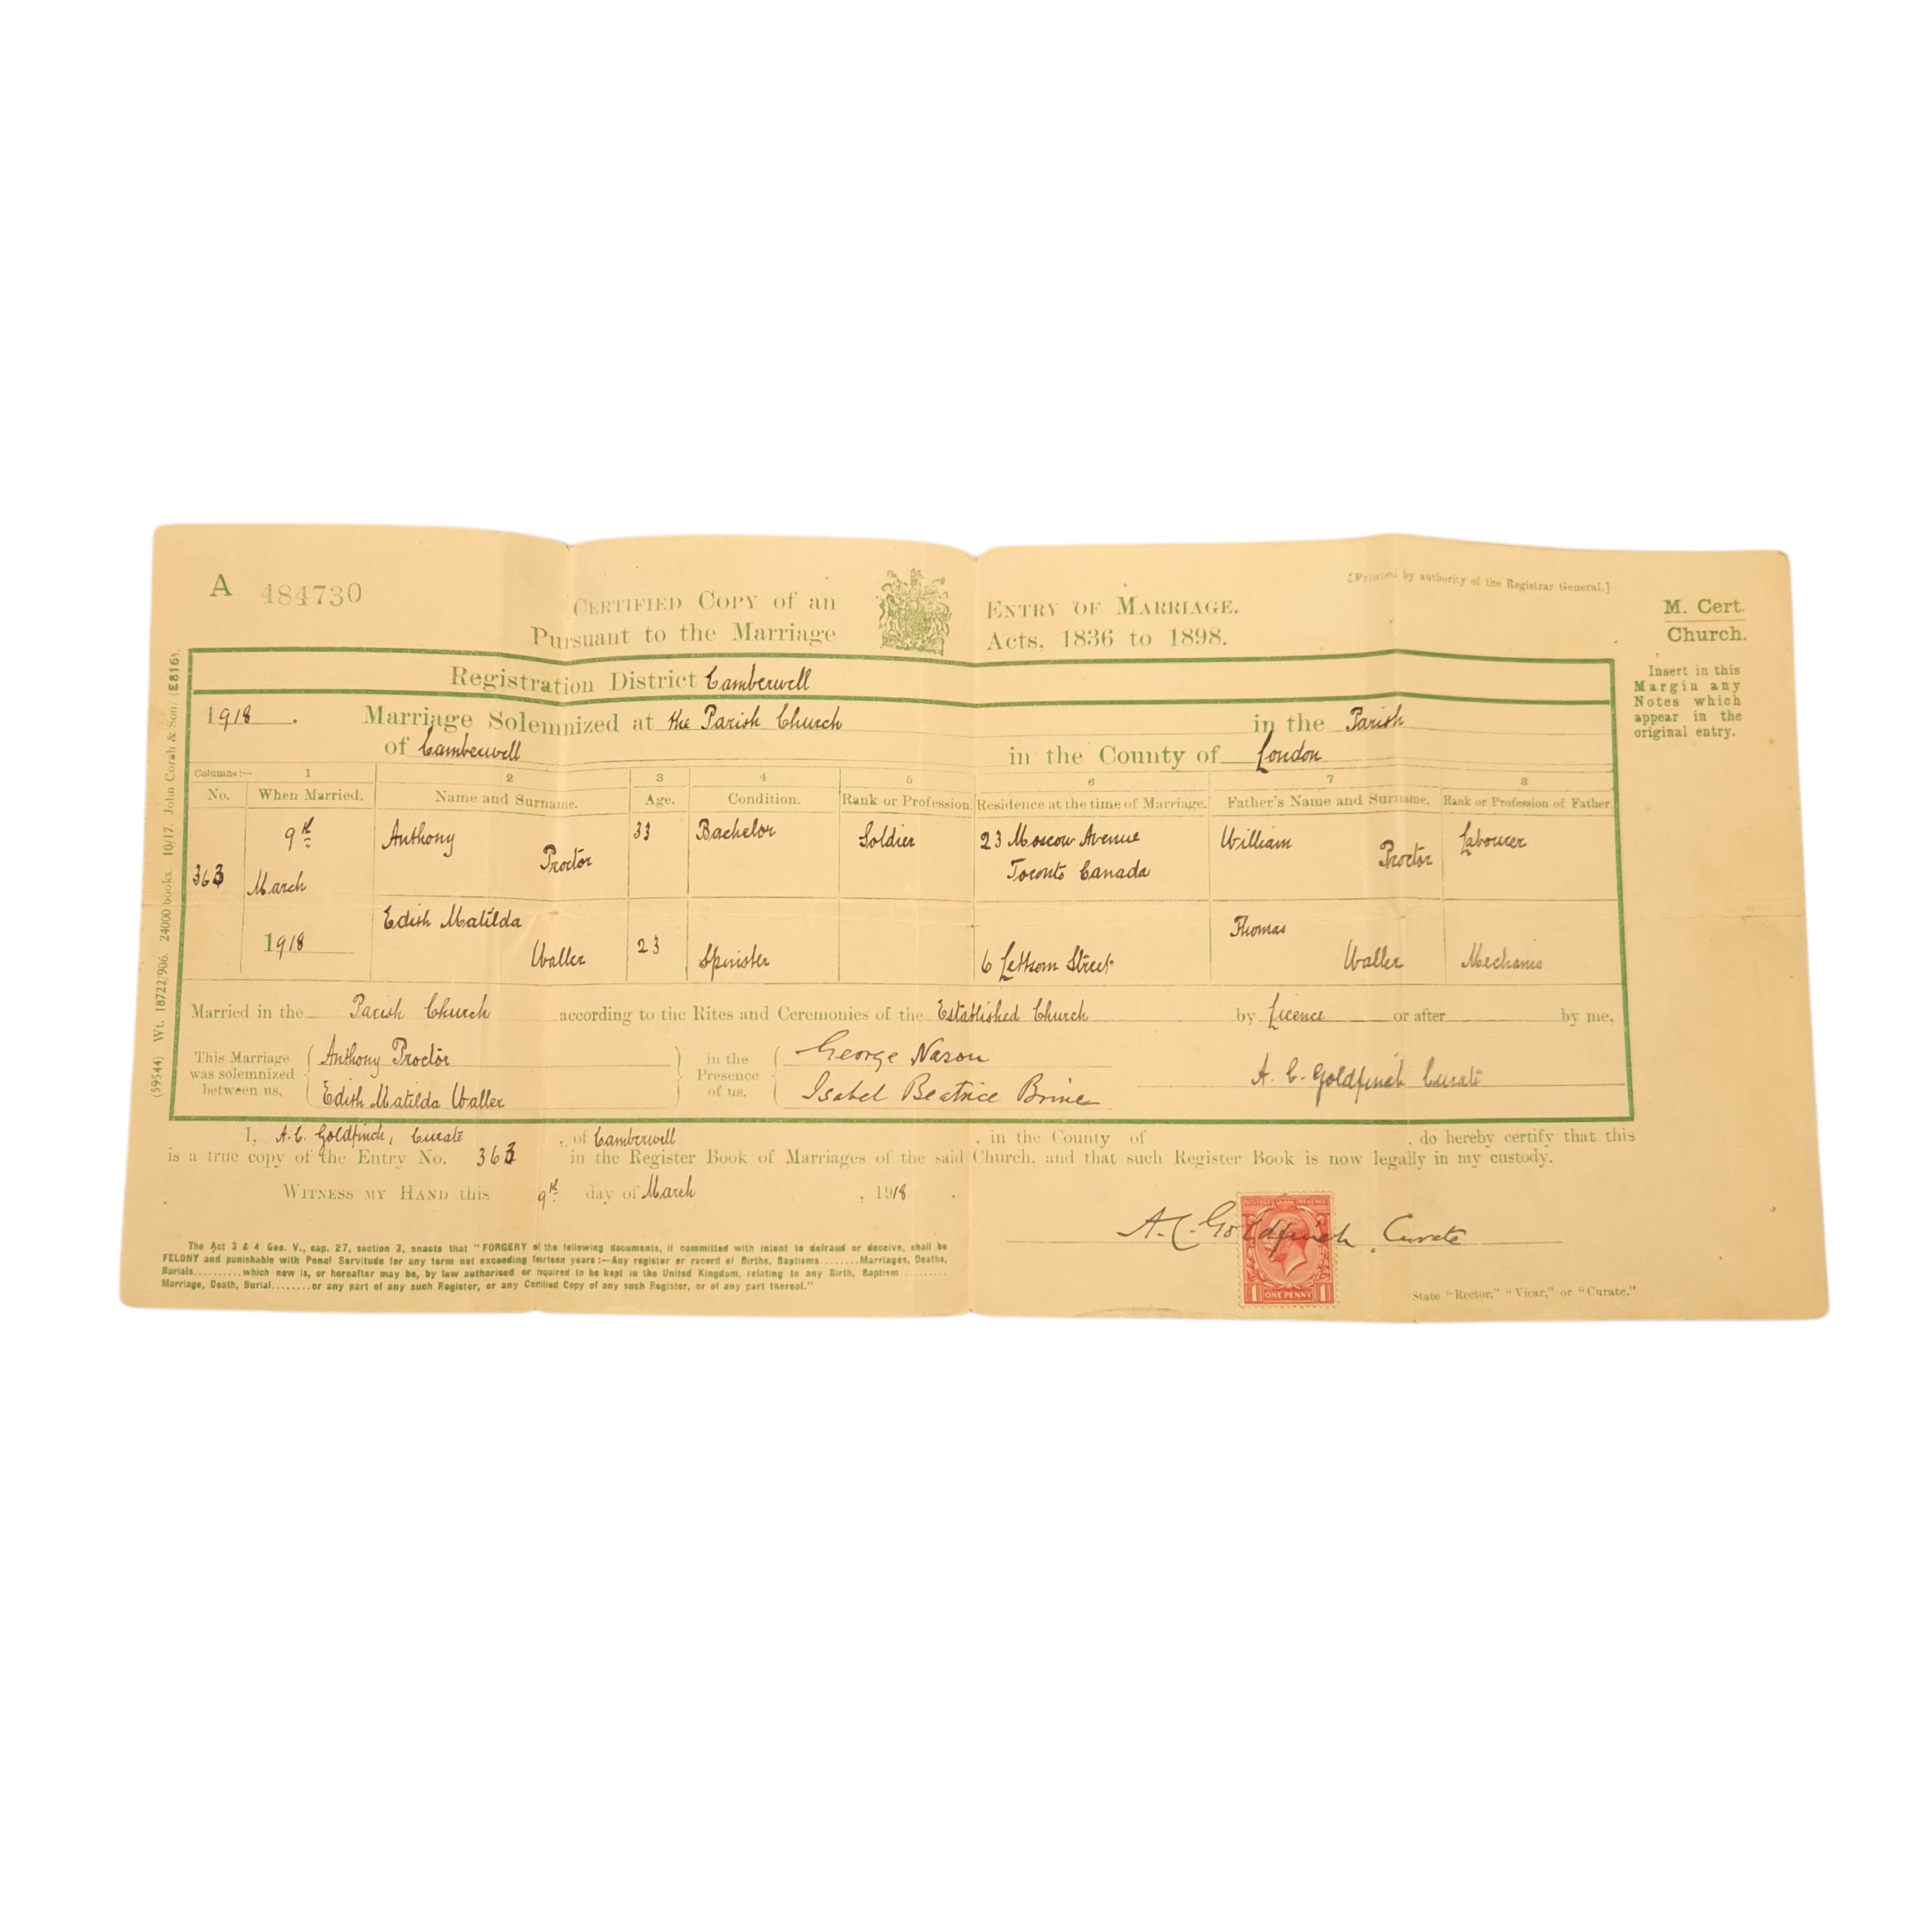 A 484730
CERTIFIED COPY of an ENTRY OF MARRIAGE.
Pursuant to the Marriage Acts, 1836 to 1898.
[Printed by authority of the Registrar General.]
M. Cert.
Church.
Insert in this
Margin any
Notes which
appear in the
original entry.
(59544) Wt. 18722/906. 24000 books. 10/17. John Corah & Son. (E816).
Registration District Camberwell
1918. Marriage Solemnized at the Parish Church in the Parish
of Camberwell in the County of London
Columns:— 1 2 3 4 5 6 7 8
No. When Married. Name and Surname. Age. Condition. Rank or Profession. Residence at the time of Marriage. Father's Name and Surname. Rank or Profession of Father.
363 9th March 1918
Anthony Proctor 33 Bachelor Soldier 23 Moscow Avenue Toronto Canada William Proctor Labourer
Edith Matilda Waller 23 Spinster 6 Lettsom Street Thomas Waller Mechanic
Married in the Parish Church according to the Rites and Ceremonies of the Established Church by Licence or after by me,
This Marriage was solemnized between us, Anthony Proctor Edith Matilda Waller in the Presence of us, George Nason Isabel Beatrice Brine A. C. Goldfinch Curate
I, A. C. Goldfinch, Curate, of Camberwell, in the County of , do hereby certify that this
is a true copy of the Entry No. 363 in the Register Book of Marriages of the said Church, and that such Register Book is now legally in my custody.
WITNESS MY HAND this 9th day of March, 1918.
A. C. Goldfinch, Curate
POSTAGE REVENUE
1 ONE PENNY 1
State "Rector," "Vicar," or "Curate."
The Act 3 & 4 Geo. V., cap. 27, section 3, enacts that "FORGERY of the following documents, if committed with intent to defraud or deceive, shall be
FELONY and punishable with Penal Servitude for any term not exceeding fourteen years:—Any register or record of Births, Baptisms........Marriages, Deaths,
Burials..........which now is, or hereafter may be, by law authorised or required to be kept in the United Kingdom, relating to any Birth, Baptism..........
Marriage, Death, Burial........or any part of any such Register, or any Certified Copy of any such Register, or of any part thereof."